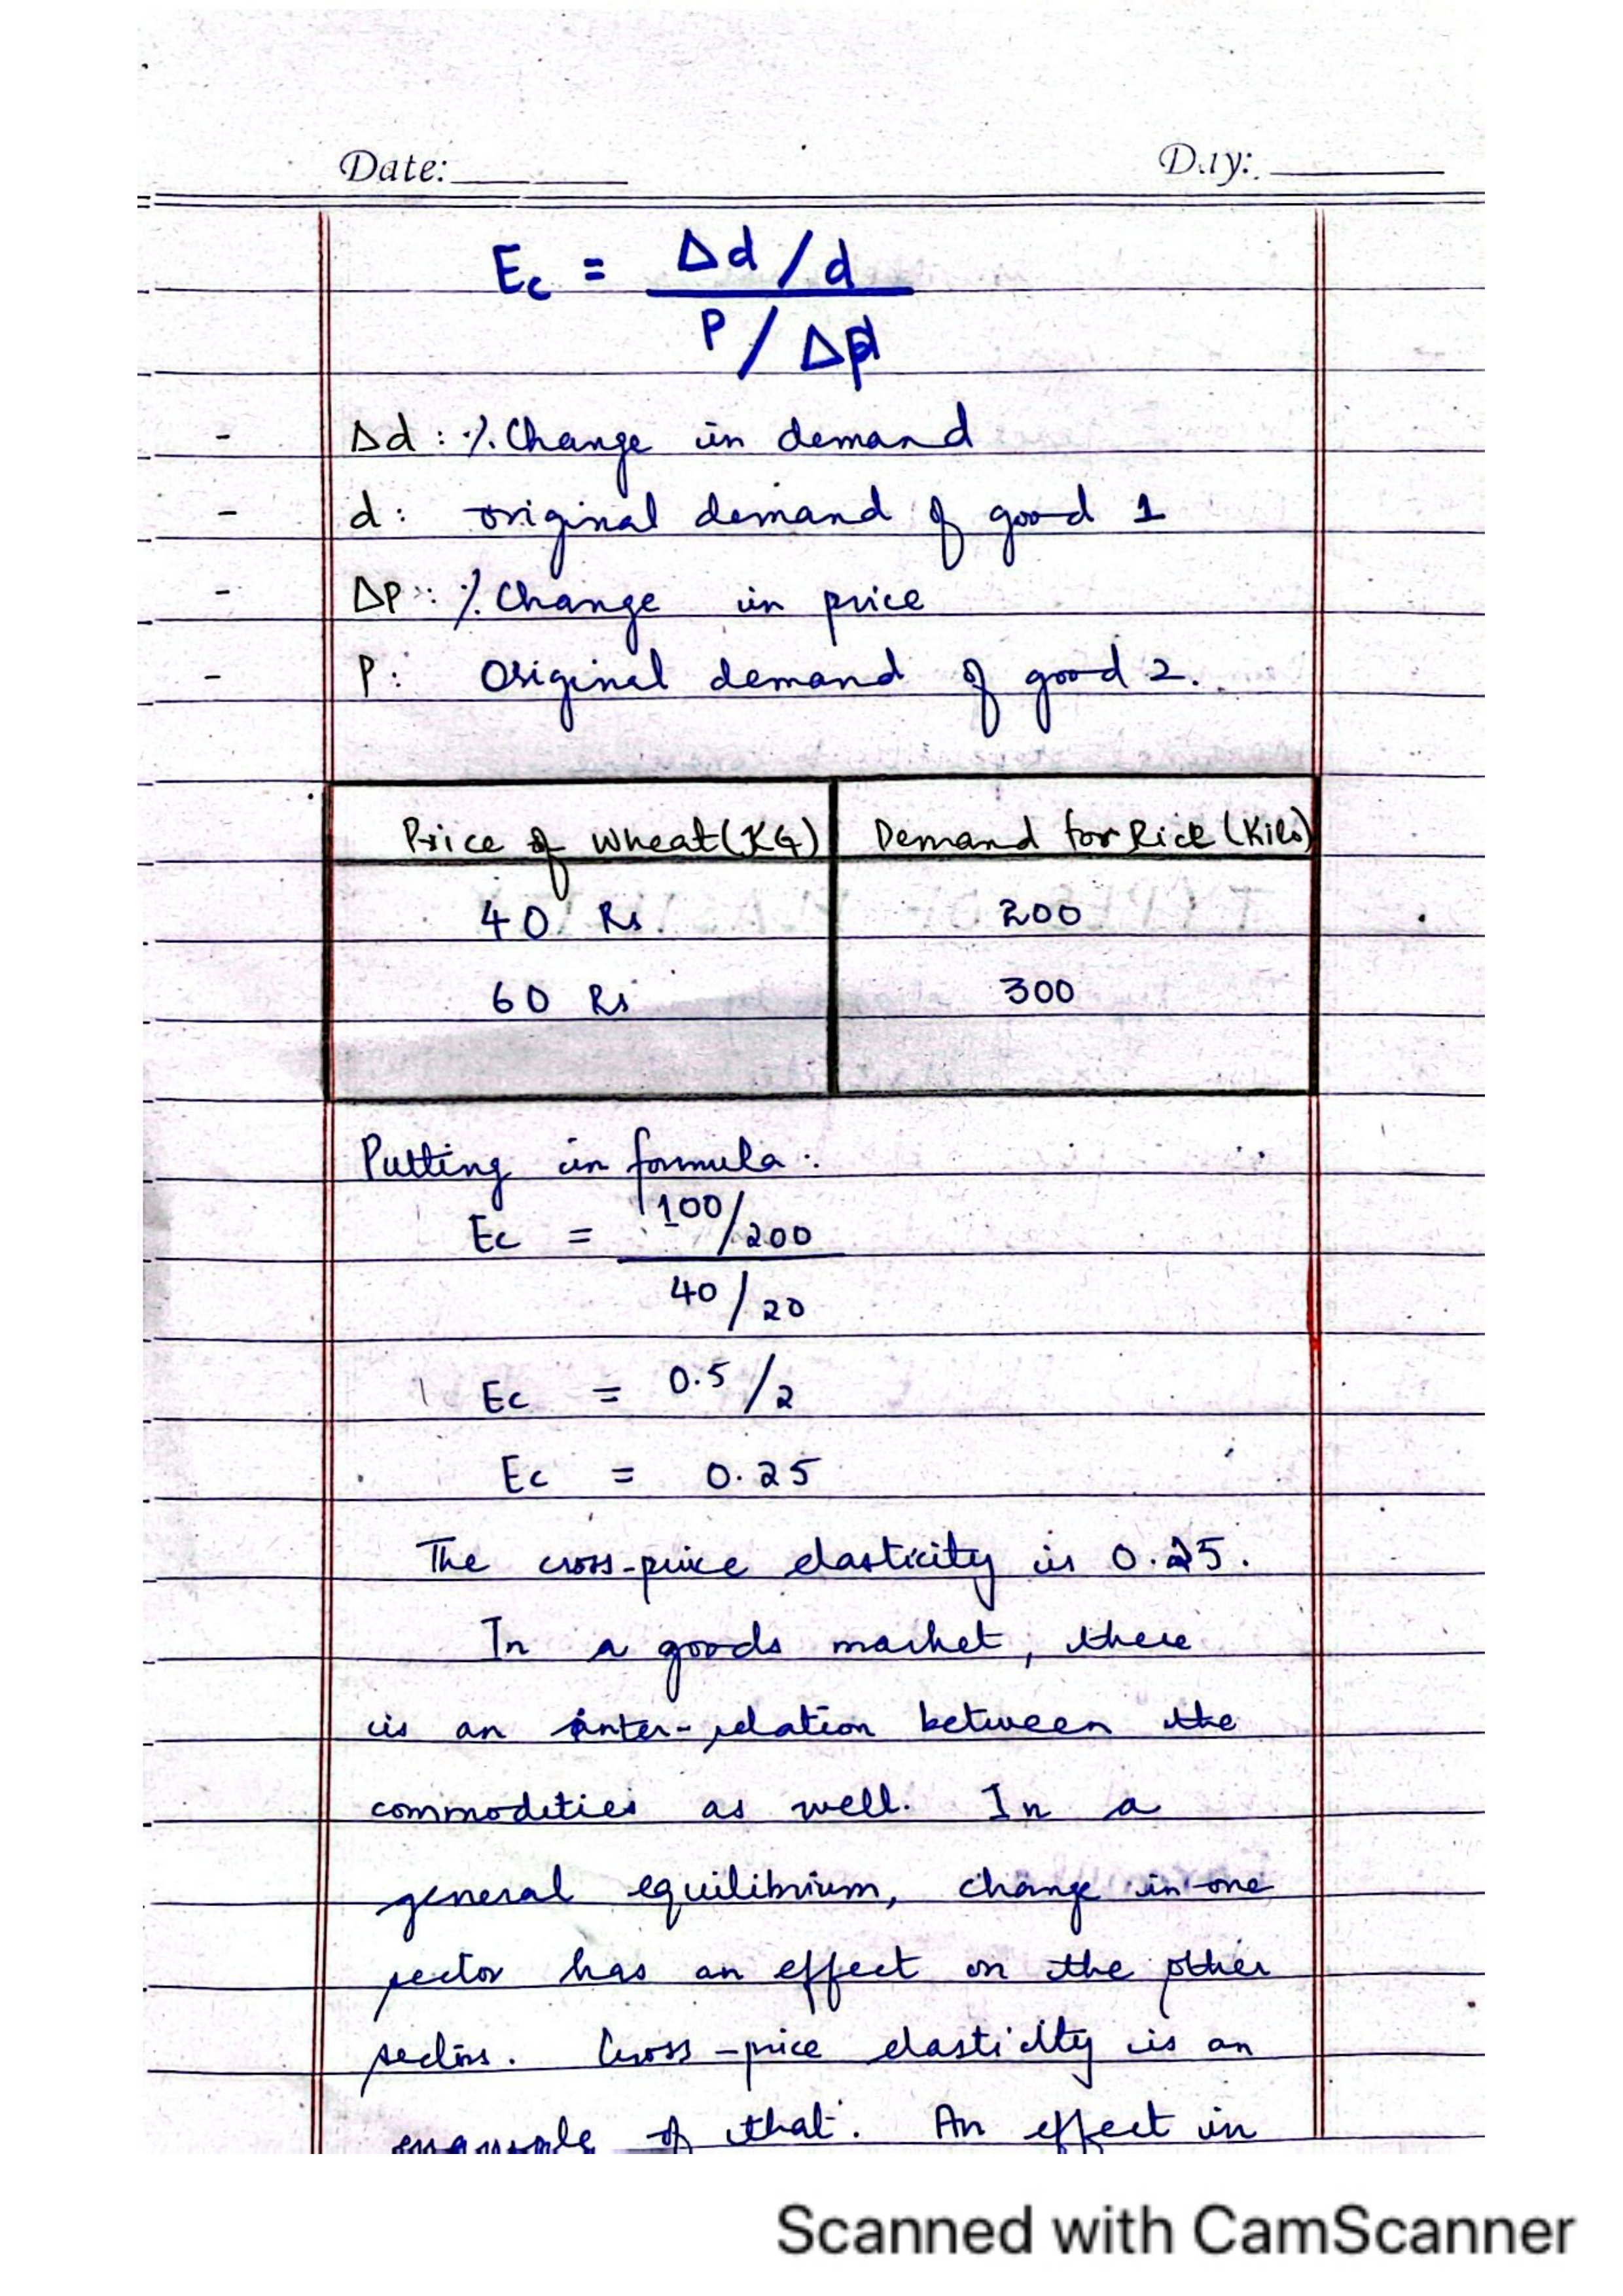 Date: Day:
Ec = Δd / d
P / Δp
- Δd : % Change in demand
- d : original demand of good 1
- Δp : % Change in price
- P : Original demand of good 2.
Price of wheat (KG) Demand for Rice (Kilo)
40 Rs 200
60 Rs 300
Putting in formula :
Ec = 100/200
40 / 20
Ec = 0.5 / 2
Ec = 0.25
The cross-price elasticity is 0.25.
In a goods market, there
is an inter-relation between the
commodities as well. In a
general equilibrium, change in one
sector has an effect on the other
sectors. Cross-price elasticity is an
example of that. An effect in
Scanned with CamScanner